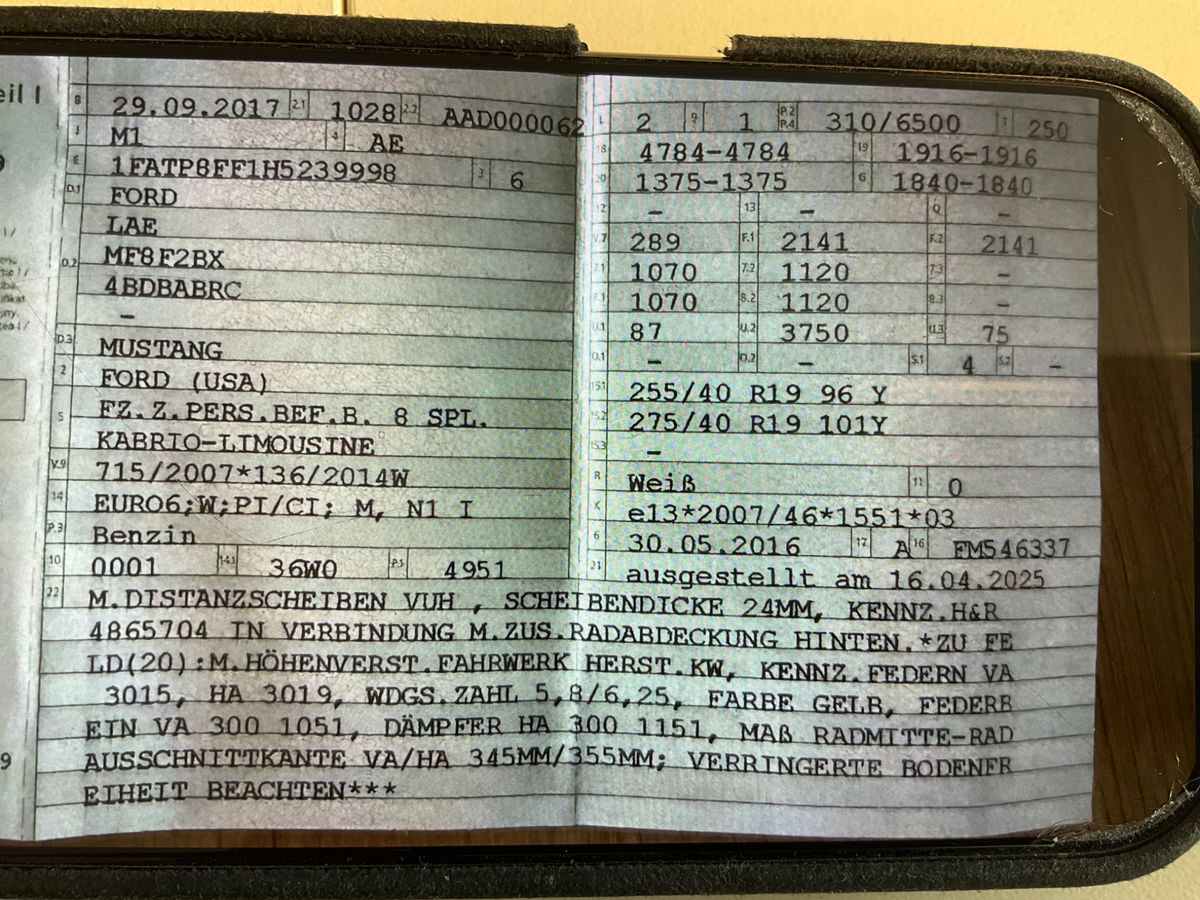 eil I
B 29.09.2017 2.1 1028 2.2 AAD000062
J M1 4 AE
E 1FATP8FF1H5239998 3 6
D.1 FORD
LAE
D.2 MF8F2BX
4BDBABRC
–
D.3 MUSTANG
2 FORD (USA)
5 FZ.Z.PERS.BEF.B. 8 SPL.
KABRIO-LIMOUSINE
V.9 715/2007*136/2014W
14 EURO6;W;PI/CI; M, N1 I
P.3 Benzin
10 0001 14.1 36W0 P.1 4951
L 2 9 1 P.2 P.4 310/6500 T 250
18 4784-4784 19 1916-1916
20 1375-1375 G 1840-1840
12 – 13 – Q –
V.7 289 F.1 2141 F.2 2141
7.1 1070 7.2 1120 7.3 –
8.1 1070 8.2 1120 8.3 –
U.1 87 U.2 3750 U.3 75
O.1 – O.2 – S.1 4 S.2 –
15.1 255/40 R19 96 Y
15.2 275/40 R19 101Y
15.3 –
R Weiß 11 0
K e13*2007/46*1551*03
6 30.05.2016 17 A 16 FM546337
21 ausgestellt am 16.04.2025
22 M.DISTANZSCHEIBEN VUH , SCHEIBENDICKE 24MM, KENNZ.H&R
4865704 IN VERBINDUNG M.ZUS.RADABDECKUNG HINTEN.*ZU FE
LD(20):M.HÖHENVERST.FAHRWERK HERST.KW, KENNZ.FEDERN VA
3015, HA 3019, WDGS.ZAHL 5,8/6,25, FARBE GELB, FEDERB
EIN VA 300 1051, DÄMPFER HA 300 1151, MAß RADMITTE-RAD
AUSSCHNITTKANTE VA/HA 345MM/355MM; VERRINGERTE BODENFR
EIHEIT BEACHTEN***